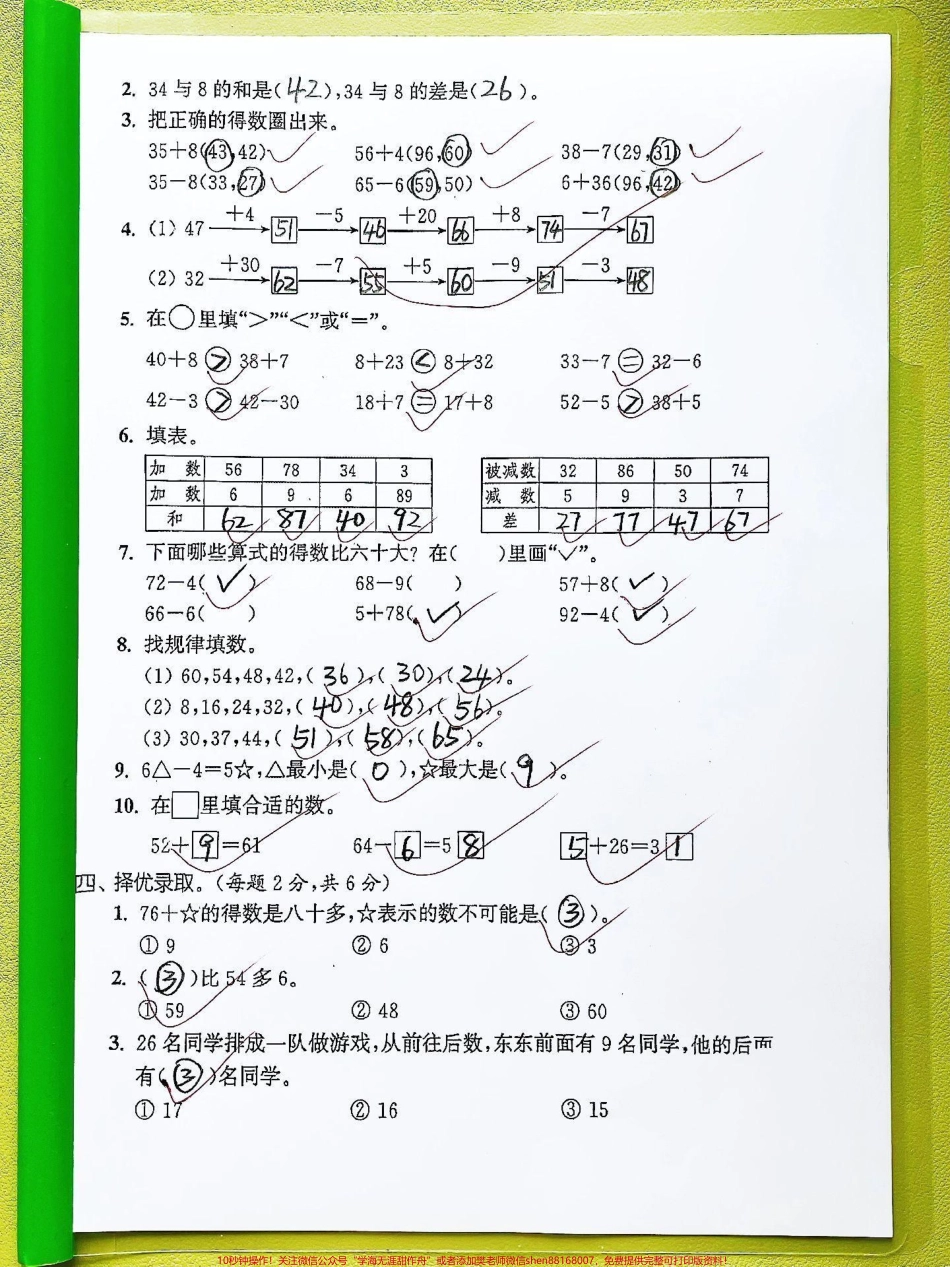 2. 34与8的和是(42),34与8的差是(26)。
3. 把正确的得数圈出来。
35+8(43,42) 56+4(96,60) 38-7(29,31)
35-8(33,27) 65-6(59,50) 6+36(96,42)
4. (1) 47 +4 51 -5 46 +20 66 +8 74 -7 67
(2) 32 +30 62 -7 55 +5 60 -9 51 -3 48
5. 在○里填“>”“<”或“=”。
40+8 > 38+7 8+23 < 8+32 33-7 = 32-6
42-3 > 42-30 18+7 = 17+8 52-5 > 38+5
6. 填表。
加 数 56 78 34 3 被减数 32 86 50 74
加 数 6 9 6 89 减 数 5 9 3 7
和 62 87 40 92 差 27 77 47 67
7. 下面哪些算式的得数比六十大?在( )里画“✓”。
72-4(✓) 68-9( ) 57+8(✓)
66-6( ) 5+78(✓) 92-4(✓)
8. 找规律填数。
(1) 60,54,48,42,(36),(30),(24)。
(2) 8,16,24,32,(40),(48),(56)。
(3) 30,37,44,(51),(58),(65)。
9. 6△-4=5☆,△最小是(0),☆最大是(9)。
10. 在□里填合适的数。
52+9=61 64-6=58 5+26=31
四、择优录取。(每题2分,共6分)
1. 76+☆的得数是八十多,☆表示的数不可能是(③)。
① 9 ② 6 ③ 3
2. (③)比54多6。
① 59 ② 48 ③ 60
3. 26名同学排成一队做游戏,从前往后数,东东前面有9名同学,他的后面
有(③)名同学。
① 17 ② 16 ③ 15
10秒钟操作!关注微信公众号“学海无涯甜作舟”或者添加樊老师微信shen88168007,免费提供完整可打印版资料!